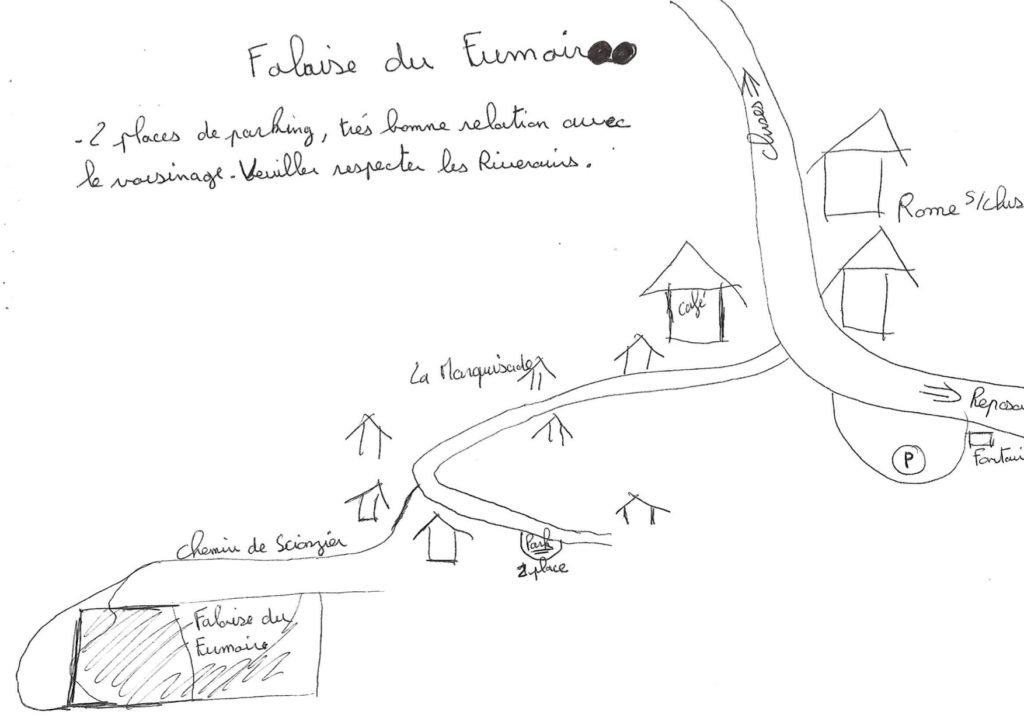 Falaise du Eumoir
- 2 places de parking, très bonne relation avvec
le voisinage. Veuiller respecter les Riverains.
cluses
Rome s/clus
café
La Marquisade
Reposo
P
Fontai
chemin de Scionzier
Park
2 place
Falaise du
Eumoire